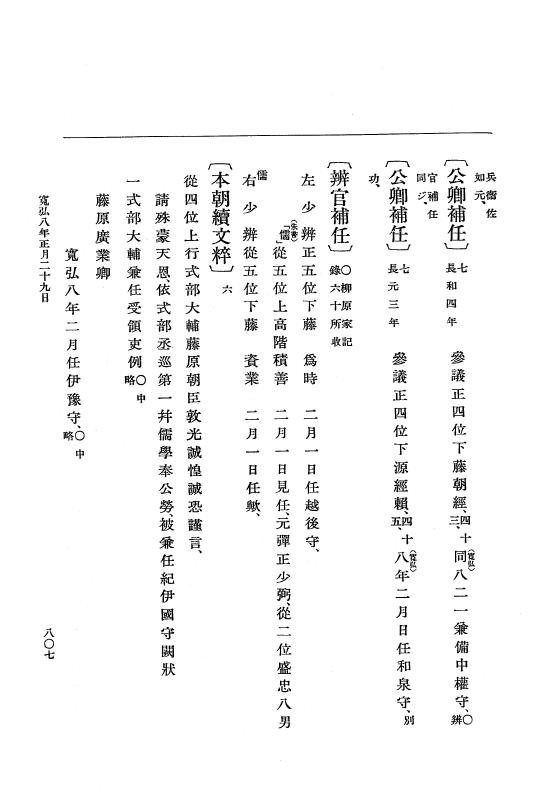 兵衞佐
如元、
〔公卿補任〕七 長和四年 參議正四位下藤朝經、四十三、同(寬弘)八二一兼備中權守、○辨
官補任
同ジ、
〔公卿補任〕七 長元三年 參議正四位下源經賴、四十五、八(寬弘)年二月日任和泉守、別
功、
〔辨官補任〕○柳原家記錄六十所收
左少辨正五位下藤 爲時 二月一日任越後守、
「儒」(朱書)從五位上高階積善 二月一日見任、元彈正少弼、從二位盛忠八男
儒
右少辨從五位下藤 資業 二月一日任歟、
〔本朝續文粹〕六
從四位上行式部大輔藤原朝臣敦光誠惶誠恐謹言、
請殊蒙天恩、依式部丞巡第一幷儒學奉公勞、被兼任紀伊國守闕狀
一式部大輔兼任受領吏例○中略
藤原廣業卿
寬弘八年二月任伊豫守、○中略
寬弘八年正月二十九日
八〇七